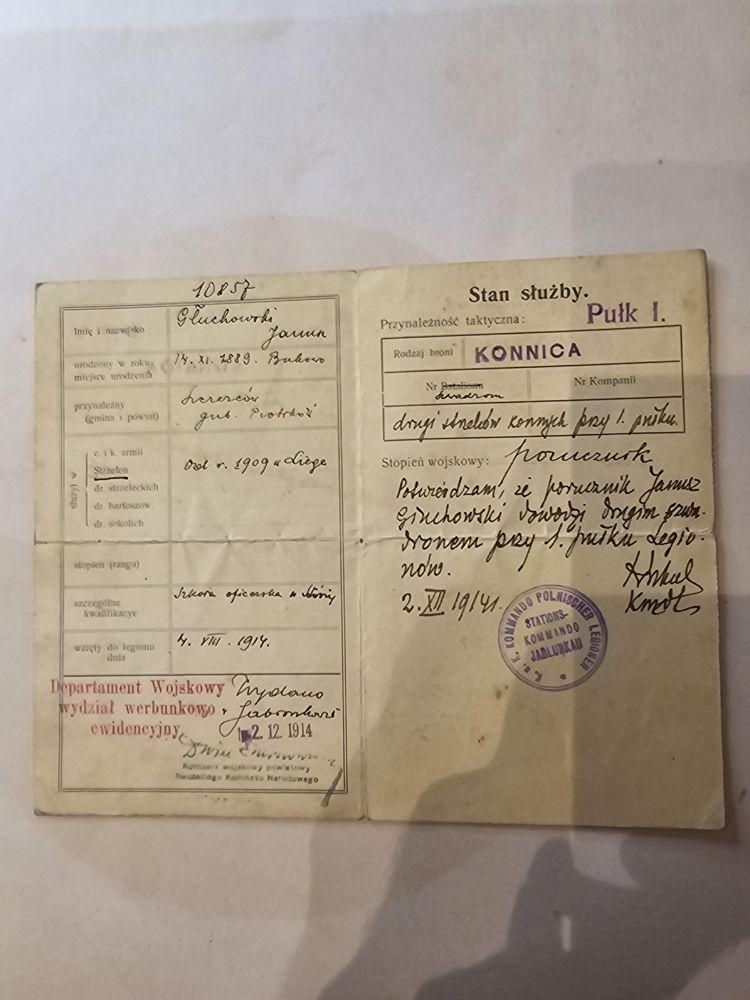 10857
Imię i nazwisko
Głuchowski
Janusz
urodzony w roku,
miejsce urodzenia
14. XI. 1889. Bukowo
przynależny
(gmina i powiat)
Szczerców
gub. Piotrków
służył w
c. i k. armii
Strzelcu
dr. strzeleckich
dr. bartoszow.
dr. sokolich
Od r. 1909 w Liege
stopień (ranga)
szczególne
kwalifikacye
Szkoła oficerska w
wzięty do legionu
dnia
4. VIII. 1914.
Departament Wojskowy
wydział werbunkowo
ewidencyjny.
Wydano
w Jabłonkowie
2. 12. 1914
Komisarz wojskowy powiatowy
Naczelnego Komitetu Narodowego
Stan służby.
Przynależność taktyczna: Pułk I.
Rodzaj broni KONNICA
Nr Batalionu
szwadron
Nr Kompanii
drugi strzelców konnych przy 1. pułku.
Stopień wojskowy: porucznik
Potwierdzam, że porucznik Janusz
Głuchowski dowodzi drugim szwa-
dronem przy 1. pułku Legio-
nów.
2. XII 1914r.
K. u. K. KOMMANDO POLNISCHER LEGIONEN
STATIONS-
KOMMANDO
JABLUNKAU